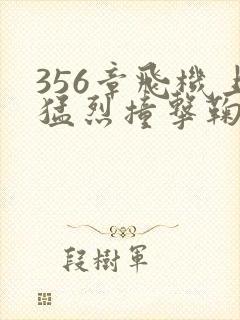 356章飛機上
猛烈撞擊鞠
段樹軍